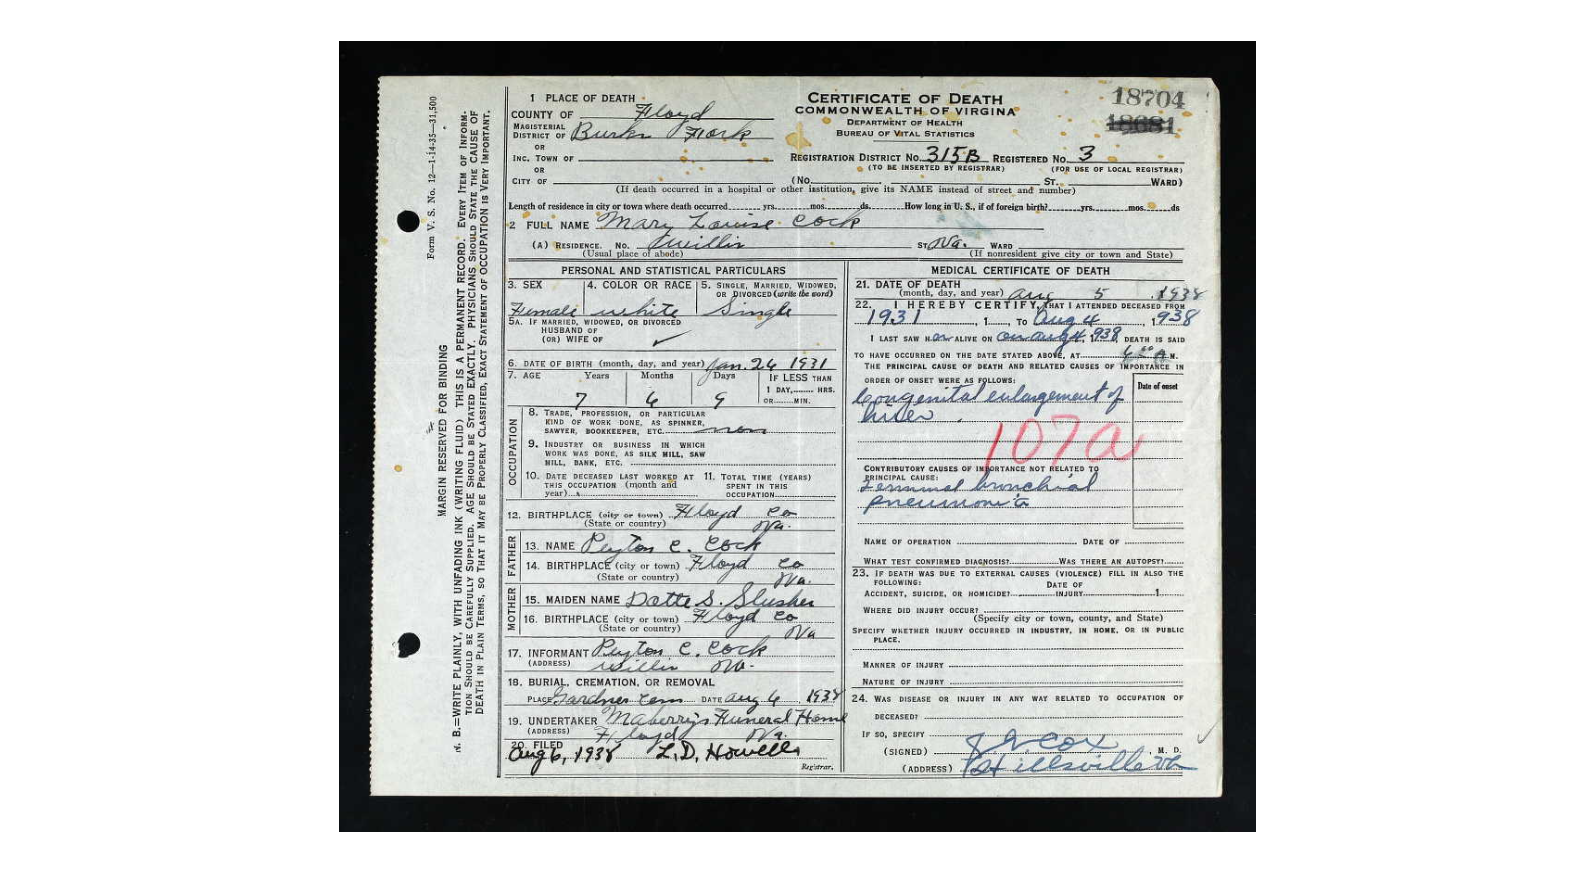 Form V. S. No. 12—1-14-35—31,500
MARGIN RESERVED FOR BINDING
N. B.—WRITE PLAINLY, WITH UNFADING INK (WRITING FLUID) THIS IS A PERMANENT RECORD. EVERY ITEM OF INFORM-
TION SHOULD BE CAREFULLY SUPPLIED. AGE SHOULD BE STATED EXACTLY. PHYSICIANS SHOULD STATE THE CAUSE OF
DEATH IN PLAIN TERMS, SO THAT IT MAY BE PROPERLY CLASSIFIED, EXACT STATEMENT OF OCCUPATION IS VERY IMPORTANT.
CERTIFICATE OF DEATH
COMMONWEALTH OF VIRGINIA
DEPARTMENT OF HEALTH
BUREAU OF VITAL STATISTICS
18704
18681
1 PLACE OF DEATH
COUNTY OF Floyd
MAGISTERIAL DISTRICT OF Burks Fork
OR
INC. TOWN OF
OR
CITY OF
REGISTRATION DISTRICT No. 315B REGISTERED No. 3
(TO BE INSERTED BY REGISTRAR) (FOR USE OF LOCAL REGISTRAR)
(No. ST. WARD)
(If death occurred in a hospital or other institution, give its NAME instead of street and number)
Length of residence in city or town where death occurred yrs. mos. ds. How long in U. S., if of foreign birth? yrs. mos. ds
2 FULL NAME Mary Louise Cock
(A) RESIDENCE. No. Willis ST. Va. WARD
(Usual place of abode) (If nonresident give city or town and State)
PERSONAL AND STATISTICAL PARTICULARS
3. SEX 4. COLOR OR RACE 5. SINGLE, MARRIED, WIDOWED, OR DIVORCED (write the word)
Female white Single
5A. IF MARRIED, WIDOWED, OR DIVORCED
HUSBAND OF
(OR) WIFE OF
6. DATE OF BIRTH (month, day, and year) Jan. 26 1931
7. AGE Years Months Days IF LESS THAN
1 DAY, HRS.
OR MIN.
7 6 9
OCCUPATION
8. TRADE, PROFESSION, OR PARTICULAR
KIND OF WORK DONE, AS SPINNER,
SAWYER, BOOKKEEPER, ETC. non
9. INDUSTRY OR BUSINESS IN WHICH
WORK WAS DONE, AS SILK MILL, SAW
MILL, BANK, ETC.
10. DATE DECEASED LAST WORKED AT THIS OCCUPATION (month and year)
11. TOTAL TIME (YEARS) SPENT IN THIS OCCUPATION
12. BIRTHPLACE (city or town) Floyd Co
(State or country) Va.
FATHER
13. NAME Peyton C. Cock
14. BIRTHPLACE (city or town) Floyd Co
(State or country) Va.
MOTHER
15. MAIDEN NAME Dotte S. Slusher
16. BIRTHPLACE (city or town) Floyd Co
(State or country) Va
17. INFORMANT Peyton C. Cock
(ADDRESS) Willis Va.
18. BURIAL, CREMATION, OR REMOVAL
PLACE Gardner Cem DATE Aug 6 1938
19. UNDERTAKER Maberry's Funeral Home
(ADDRESS) Floyd Va.
20. FILED
Aug 6, 1938 L. D. Howell
Registrar.
MEDICAL CERTIFICATE OF DEATH
21. DATE OF DEATH
(month, day, and year) Aug 5, 1938
22. I HEREBY CERTIFY, THAT I ATTENDED DECEASED FROM
1931, 1 TO Aug 4, 1938
I LAST SAW H er ALIVE ON on Aug 4, 1938, DEATH IS SAID
TO HAVE OCCURRED ON THE DATE STATED ABOVE, AT A M.
THE PRINCIPAL CAUSE OF DEATH AND RELATED CAUSES OF IMPORTANCE IN
ORDER OF ONSET WERE AS FOLLOWS:
Date of onset
Congenital enlargement of
liver
107a
CONTRIBUTORY CAUSES OF IMPORTANCE NOT RELATED TO
PRINCIPAL CAUSE:
Terminal bronchial
pneumonia
NAME OF OPERATION DATE OF
WHAT TEST CONFIRMED DIAGNOSIS? WAS THERE AN AUTOPSY?
23. IF DEATH WAS DUE TO EXTERNAL CAUSES (VIOLENCE) FILL IN ALSO THE
FOLLOWING:
ACCIDENT, SUICIDE, OR HOMICIDE? DATE OF INJURY 1
WHERE DID INJURY OCCUR?
(Specify city or town, county, and State)
SPECIFY WHETHER INJURY OCCURRED IN INDUSTRY, IN HOME, OR IN PUBLIC
PLACE.
MANNER OF INJURY
NATURE OF INJURY
24. WAS DISEASE OR INJURY IN ANY WAY RELATED TO OCCUPATION OF
DECEASED?
IF SO, SPECIFY
(SIGNED) Cox, M. D.
(ADDRESS) Hillsville Va